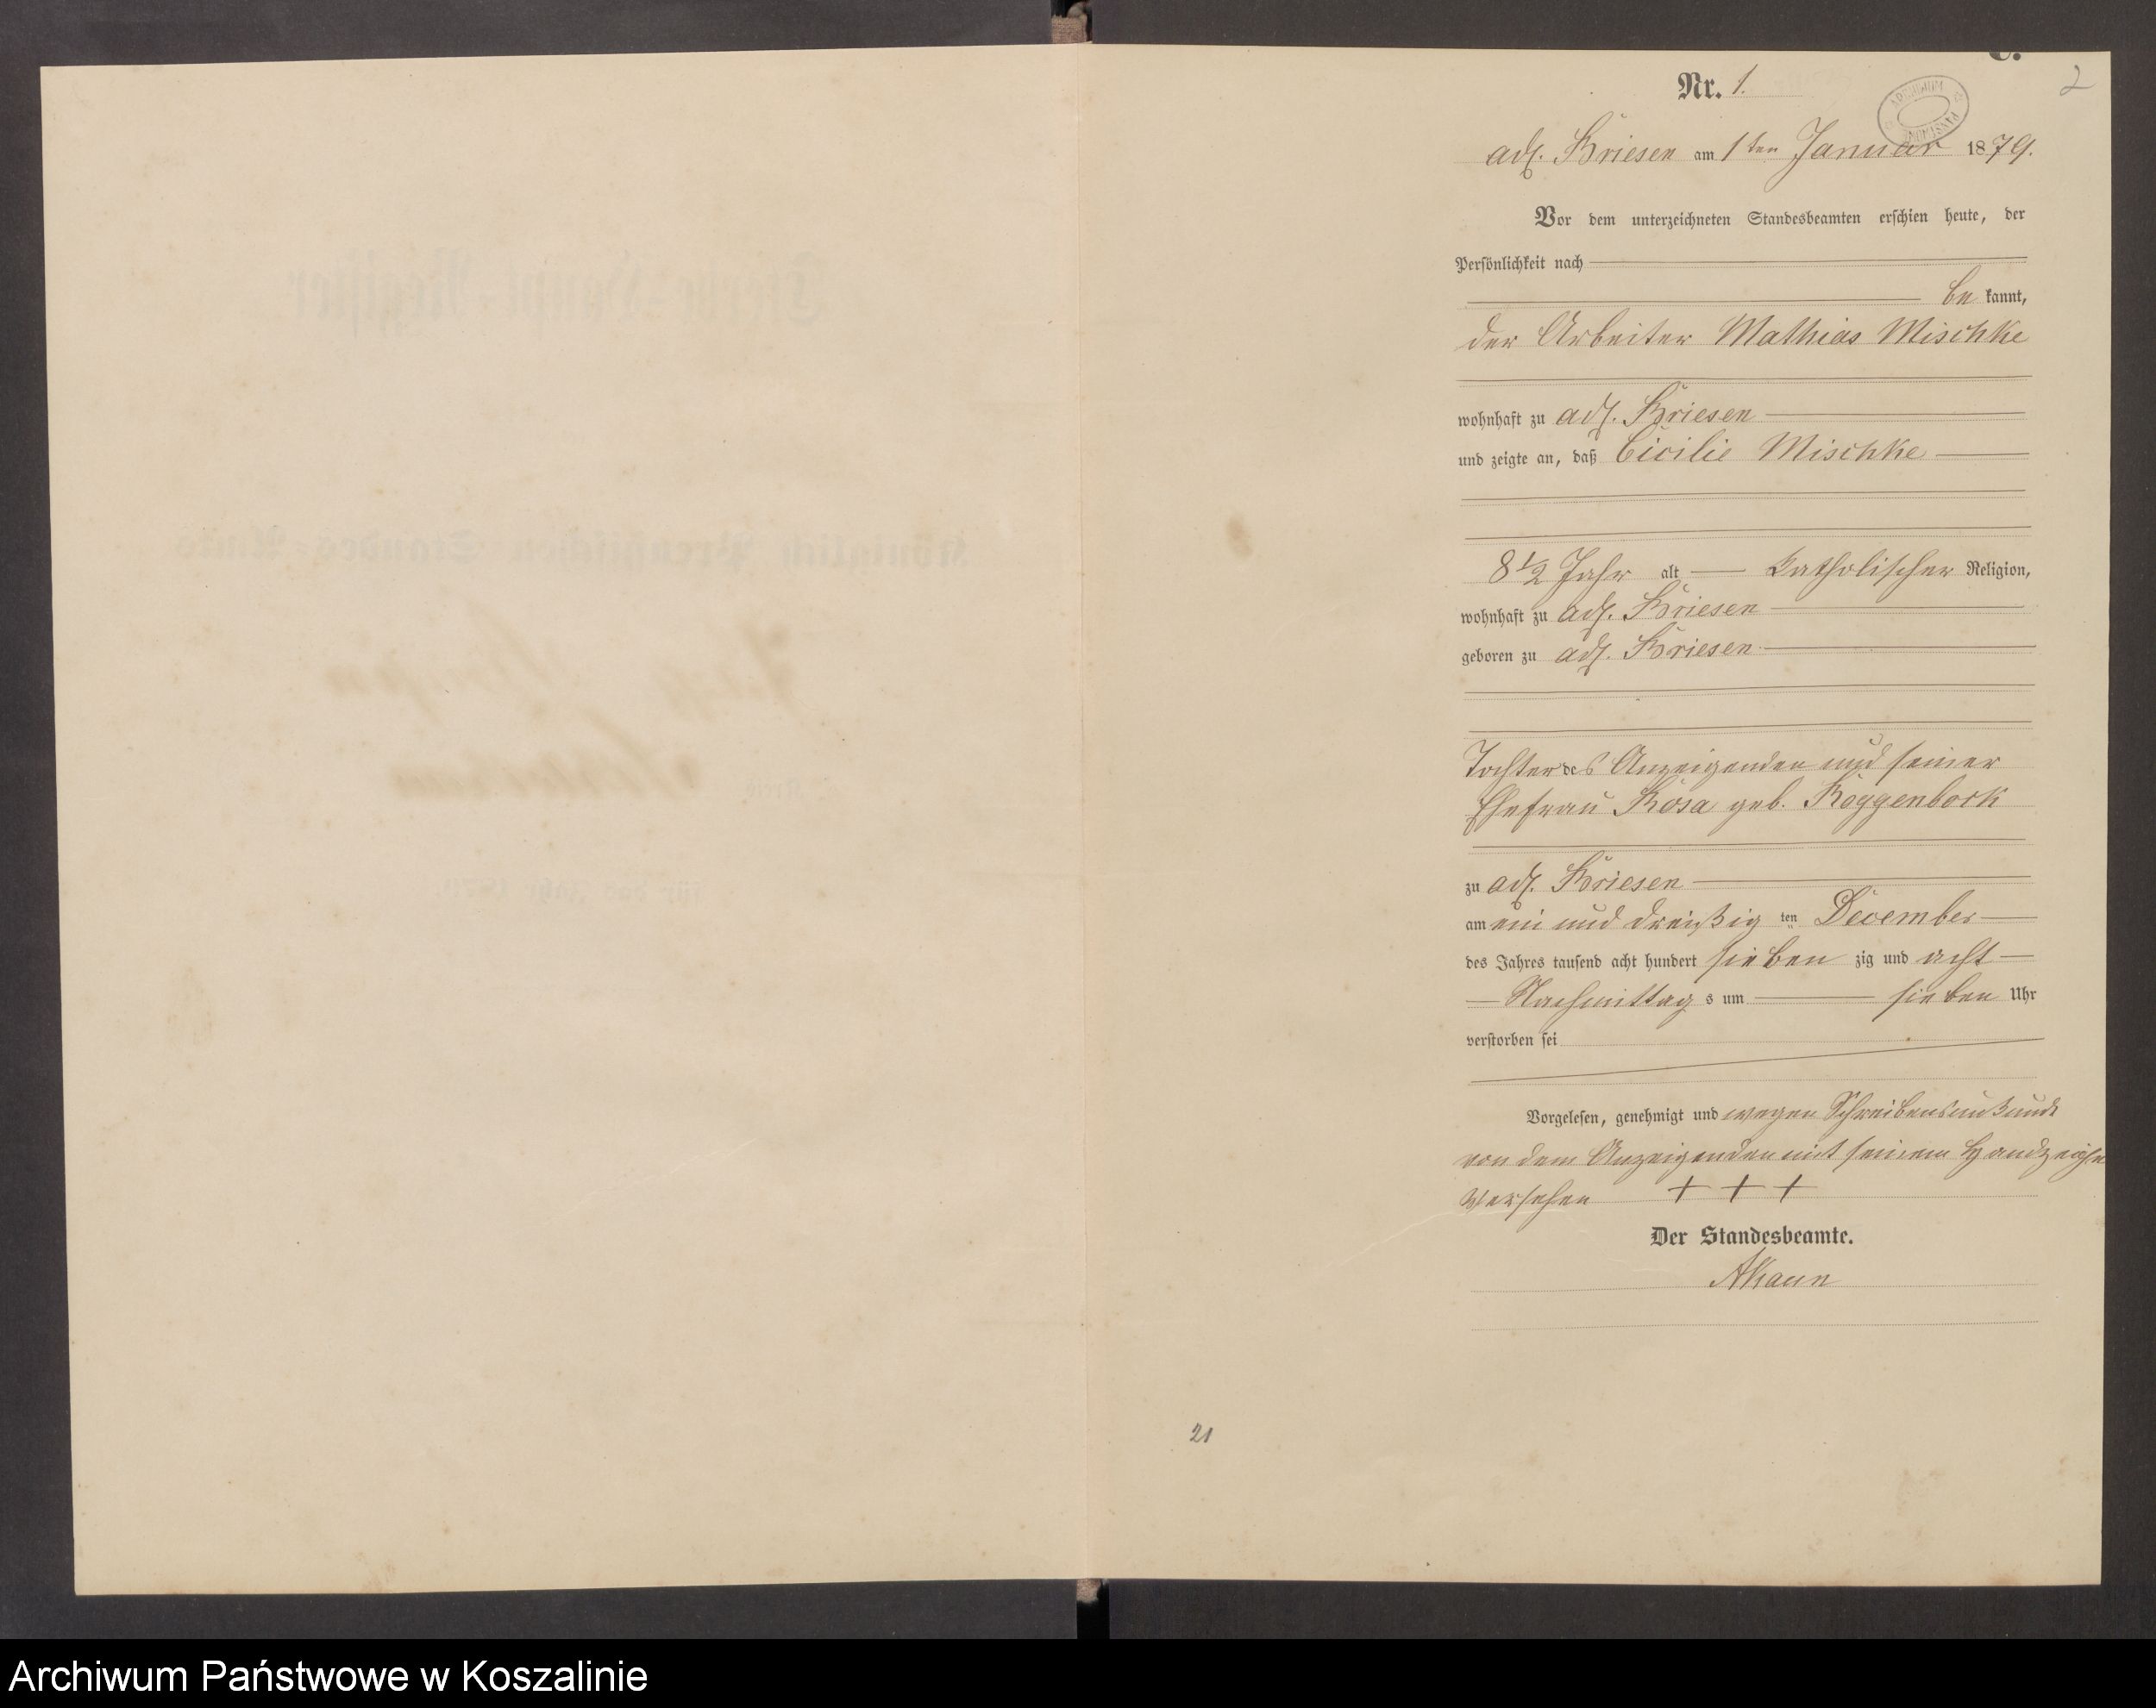 C.
2
Nr. 1.
adl. Briesen am 1ten Januar 1879.
Vor dem unterzeichneten Standesbeamten erschien heute, der
Persönlichkeit nach
bekannt,
der Arbeiter Mathias Mischke
wohnhaft zu adl. Briesen
und zeigte an, daß Cicilie Mischke
8 1/2 Jahr alt katholischer Religion,
wohnhaft zu adl. Briesen
geboren zu adl. Briesen
Tochter des Anzeigenden und seiner
Ehefrau Rosa geb. Roggenbock
zu adl. Briesen
am ein und dreißig ten December
des Jahres tausend acht hundert sieben zig und acht
Nachmittags um sieben Uhr
verstorben sei
Vorgelesen, genehmigt und wegen Schreibensunkunde
von dem Anzeigenden mit seinem Handzeichen
versehen + + +
Der Standesbeamte.
21
Archiwum Państwowe w Koszalinie